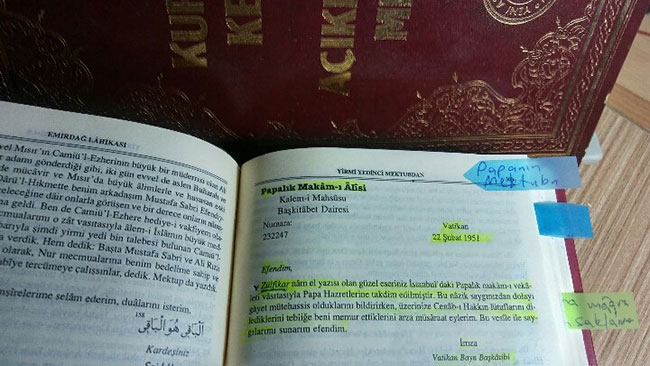 KUR
KE
AÇIK
ME
EMİRDAĞ LÂHİKASI
vel Mısır'ın Camiü'l-Ezherinin büyük bir müderrisi olan Ali
adamı gönderdiği gibi, iki gün evvel de aslen Buharalı ve
de mücavir ve Mısır'da büyük âlimlerle ve hususan eski
Dârü'l-Hikmette benim arkadaşım Mustafa Sabri Efendiy-
geleceğine dair onlarla görüşen ve bir derece onların nâmına
na geldi. Ben de Camiü'l-Ezhere hediye-i vakfiyem ola-
mecmualarını o zât vasıtasıyla âlem-i İslâmın büyük med-
barıyla şimdi yirmi yedi bin talebesi bulunan Camiü'l-
verdik. Hem dedik: Başta Mustafa Sabri ve Ali Rıza
olarak, Nur mecmualarına benim bedelime sahip ve
tercümeye çalışsınlar, dedik. Mektup da yazdık.
selam ederim, dualarını isterim.
158
اَلْبَاقِى هُوَ الْبَاقِى
Kardeşiniz
YİRMİ YEDİNCİ MEKTUBDAN
Papalık Makâm-ı Âlîsi
Kalem-i Mahsûsu
Başkitâbet Dairesi
Numara:
232247
Vatikan
22 Şubat 1951
Efendim,
Zülfikar nâm el yazısı olan güzel eseriniz İstanbul'daki Papalık makâm-ı vekâ-
leti vâsıtasıyla Papa Hazretlerine takdim edilmiştir. Bu nâzik saygınızdan dolayı
gâyet mütehassis olduklarını bildirirken, üzerinize Cenâb-ı Hakkın lûtuflarını di-
lediklerini tebliğe beni memur ettiklerini arza müsâraat eylerim. Bu vesile ile say-
gılarımı sunarım efendim.
İmza
Vatikan Bayn Başkâtibi
Papanın
Mektubu